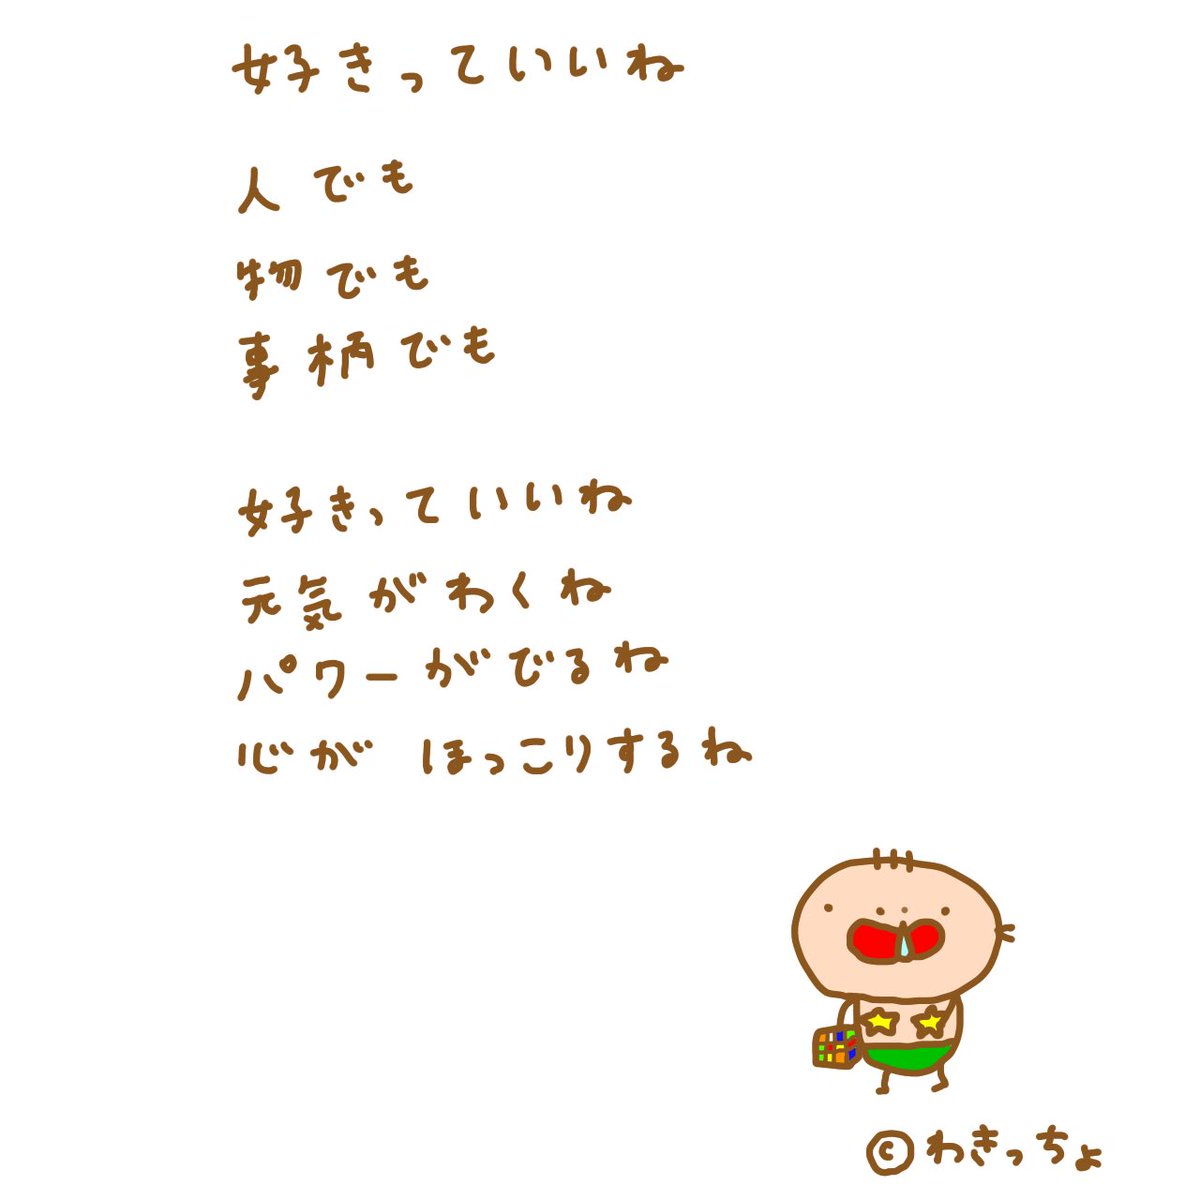 好きっていいね
人でも
物でも
事柄でも
好きっていいね
元気がわくね
パワーがでるね
心がほっこりするね
©わきっちょ